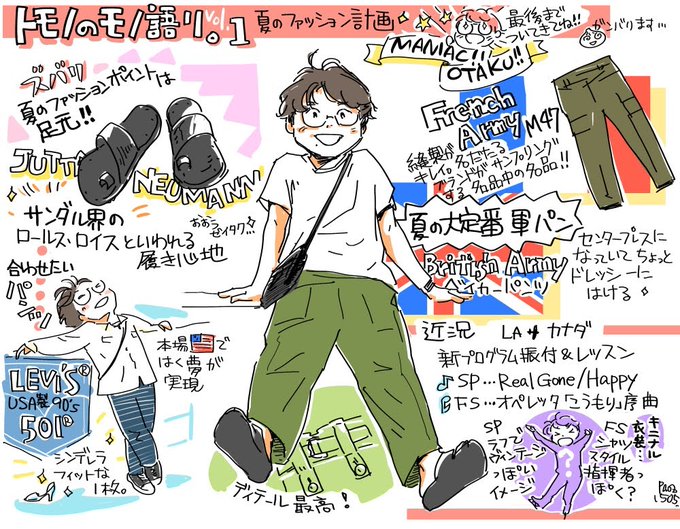 トモノのモノ語り。vol.1
夏のファッション計画
最後まで
ついてきてね!!
ガンバります…
MANIAC!!
OTAKU!!
ズバリ
夏のファッションポイントは
足元!!
JUTTA
NEUMANN
サンダル界の
ロールス・ロイスといわれる
履き心地
おおこ
ゼイタク!!
French
Army M47
縫製が
キレイ。
名だたる
ブランドがサンプリング
する名品中の名品!!
夏の大定番軍パン
British Army
ベイカーパンツ
センタープレスに
なっていてちょっと
ドレッシーに
はける
合わせたい
パンツ
本場で
はく夢が
実現
LEVI'S®
USA製90's
501®
シンデレラ
フィットな
1枚。
ディテール最高!
近況 LA→カナダ
新プログラム振付&レッスン
SP…Real Gone/Happy
FS…オペレッタ「こうもり」序曲
キニナル
衣装…
SP
ラフで
ヴィンテージ
っぽい
イメージ
FS
シャツ
スタイル
指揮者っ
ぽく?